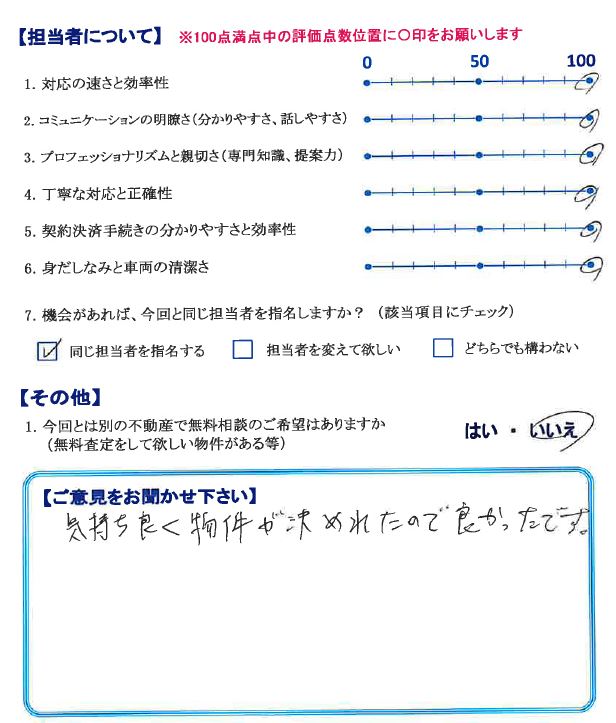 【担当者について】 ※100点満点中の評価点数位置に〇印をお願いします
0 50 100
1. 対応の速さと効率性
2. コミュニケーションの明瞭さ(分かりやすさ、話しやすさ)
3. プロフェッショナリズムと親切さ(専門知識、提案力)
4. 丁寧な対応と正確性
5. 契約決済手続きの分かりやすさと効率性
6. 身だしなみと車両の清潔さ
7. 機会があれば、今回と同じ担当者を指名しますか? (該当項目にチェック)
同じ担当者を指名する 担当者を変えて欲しい どちらでも構わない
【その他】
1. 今回とは別の不動産で無料相談のご希望はありますか
(無料査定をして欲しい物件がある等)
はい ・ いいえ
【ご意見をお聞かせ下さい】
気持ち良く物件が決めれたので良かったです。